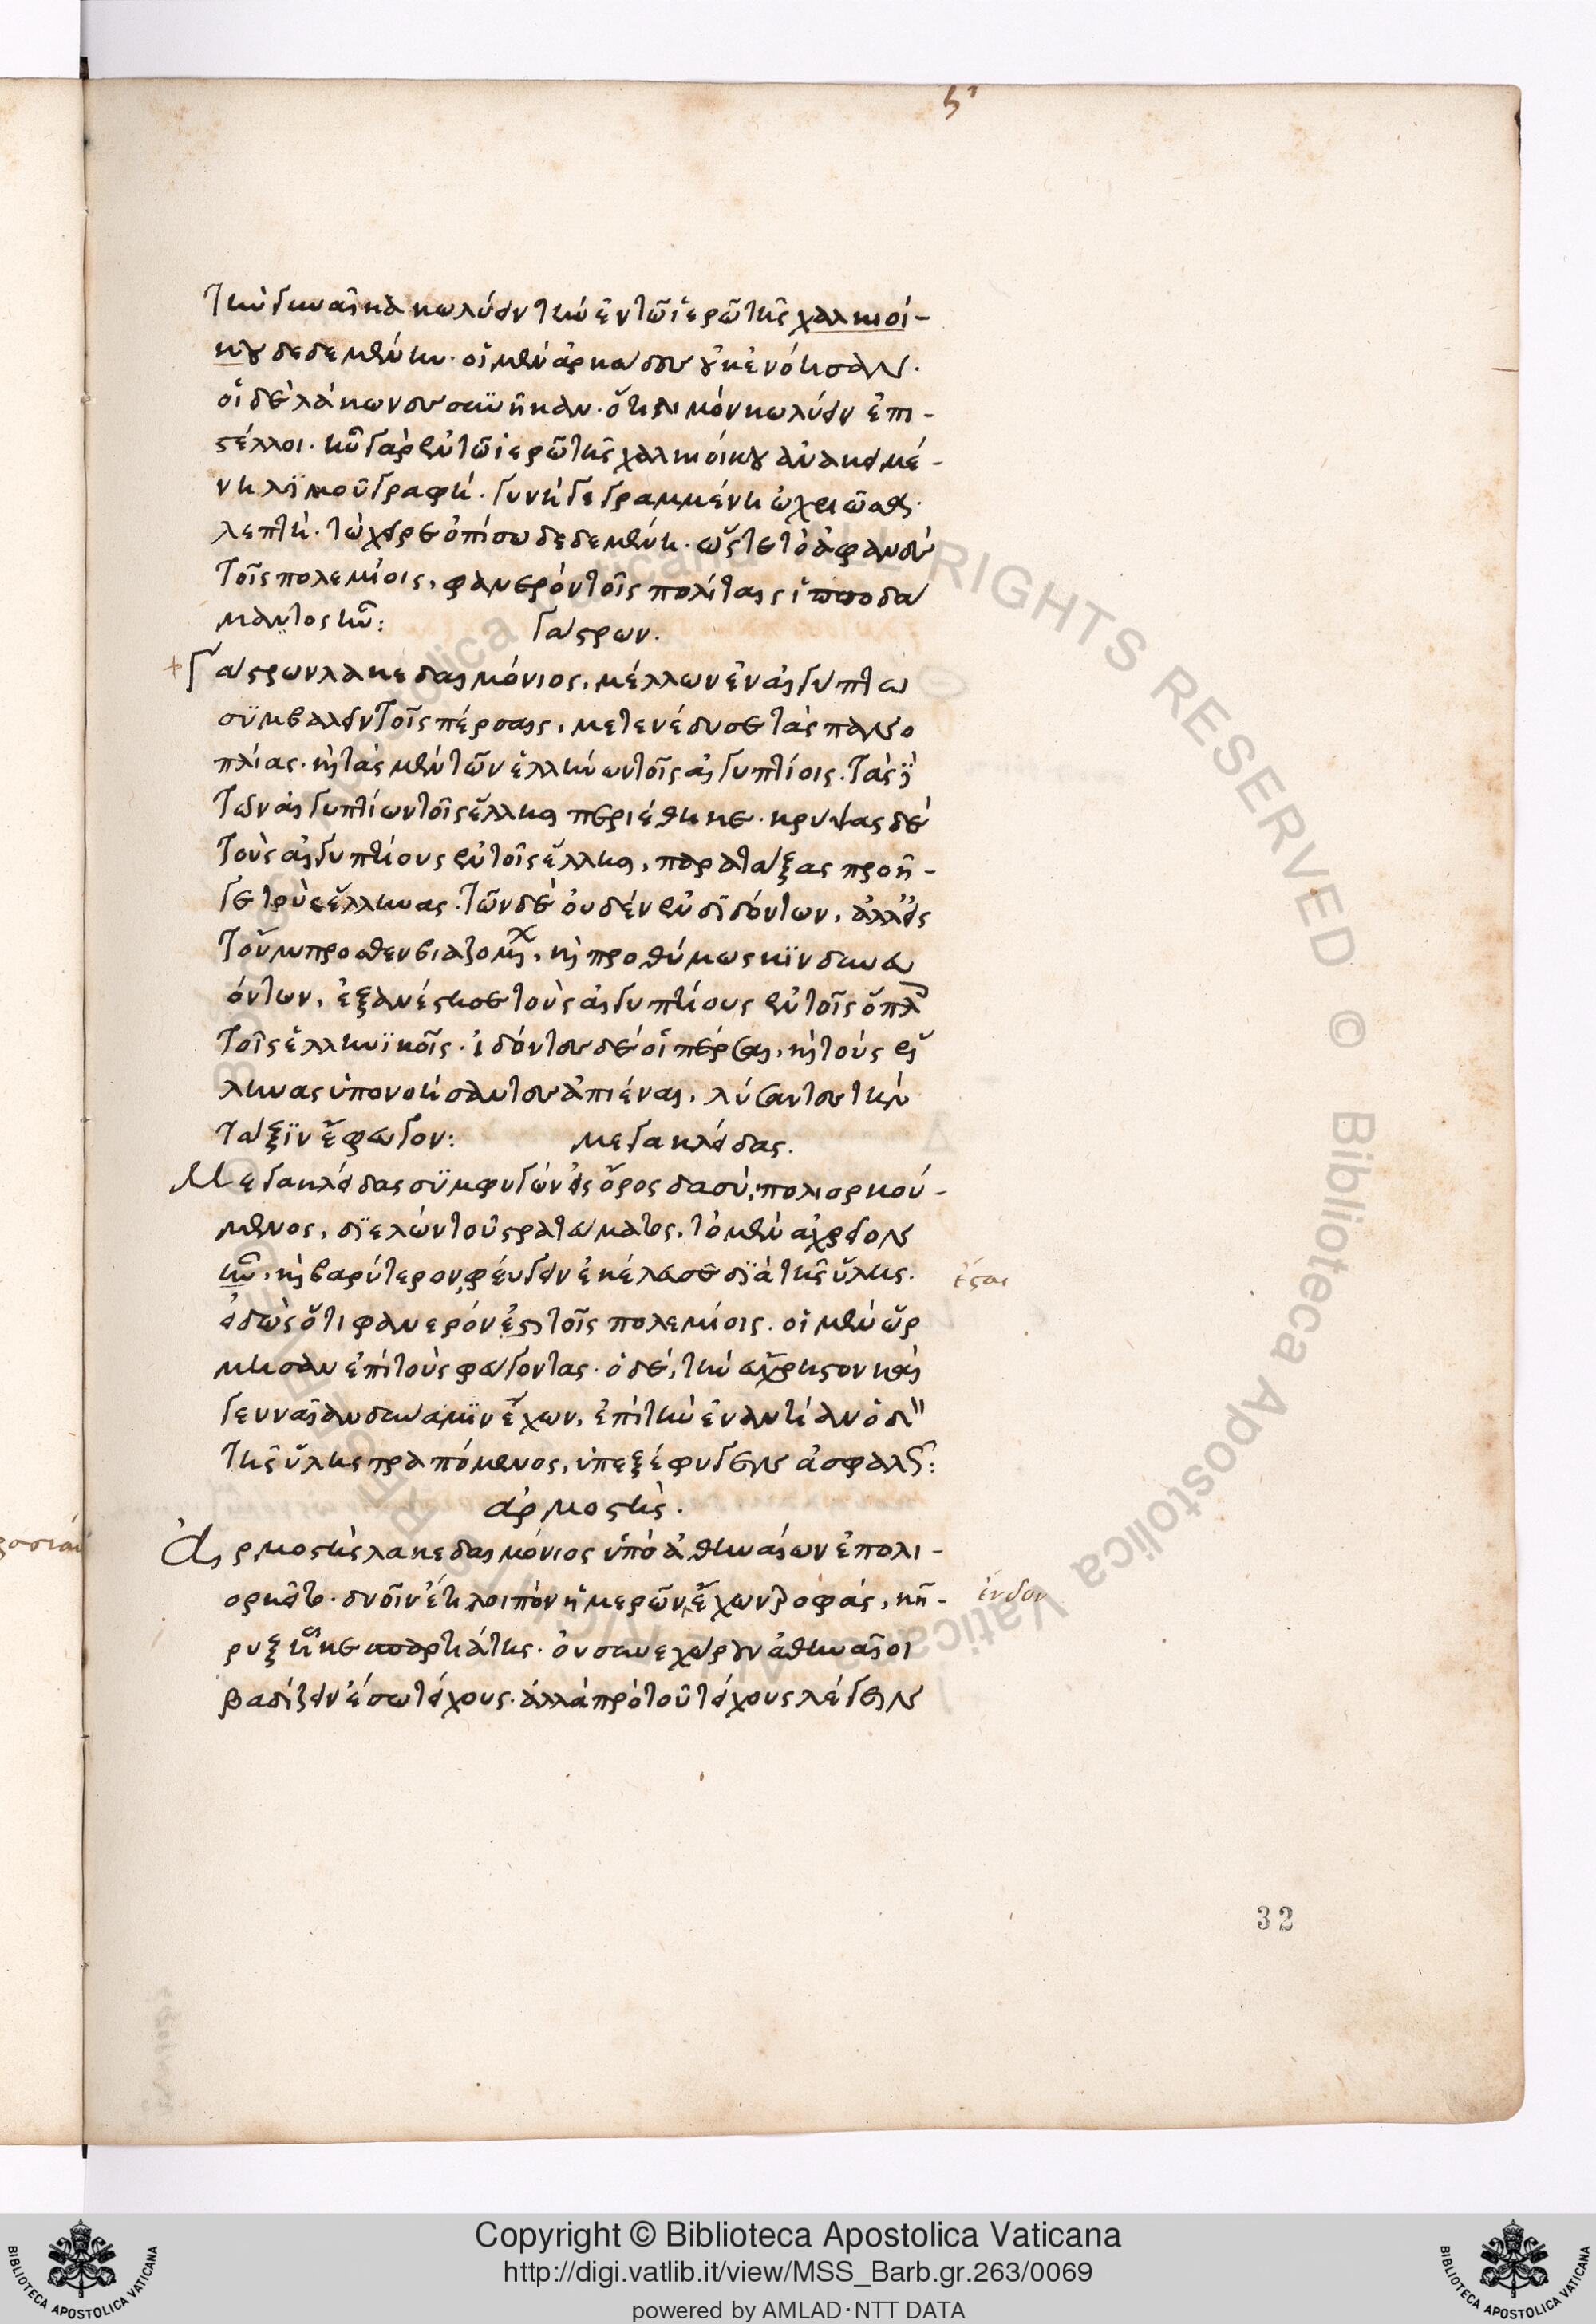 ς´
τὴν γυναῖκα κωλύειν τὴν ἐν τῶ ἱερῶ τῆς χαλκιοί-
κου δεδεμένην. οἱ μὲν ἀρκάδες οὐκ ἐνόησαν.
οἱ δὲ λάκωνες συνῆκαν. ὅτι λιμὸν κωλύειν ἐπι-
στέλλοι. ἦν γὰρ ἐν τῶ ἱερῶ τῆς χαλκιοίκου ἀνακειμέ-
νη λιμοῦ γραφή. γυνὴ γεγραμμένη ὠχριῶσα.
λεπτή. τὼ χεῖρε ὀπίσω δεδεμένη. ὥστε τὸ ἀφανὲς
τοῖς πολεμίοις, φανερὸν τοῖς πολίταις ἱπποδά
μαντος ἦν: Γάστρων.
+ Γάστρων λακεδαιμόνιος, μέλλων ἐν αἰγύπτω
συμβαλεῖν τοῖς πέρσαις, μετενέδυσε τὰς πανο
πλίας. καὶ τὰς μὲν τῶν ἑλλήνων τοῖς αἰγυπτίοις. τὰς δὲ
τῶν αἰγυπτίων τοῖς ἕλλησι περιέθηκε. κρύψας δὲ
τοὺς αἰγυπτίους ἐν τοῖς ἕλλησι, παρατάξας προῆ-
γε τοὺς ἕλληνας. τῶν δὲ οὐδὲν ἐνδιδόντων, ἀλλ' εἰς
τοὔμπροσθεν βιαζομένων, καὶ προθύμως κινδυνευ
όντων, ἐξανέστησε τοὺς αἰγυπτίους ἐν τοῖς ὅπλοις
τοῖς ἑλληνικοῖς. ἰδόντες δὲ οἱ πέρσαι, καὶ τοὺς ἕλ
ληνας ὑπονοήσαντες ἀπιέναι, λύσαντες τὴν
τάξιν ἔφευγον: μεγακλείδας.
Μεγακλείδας συμφυγὼν εἰς ὄρος δασύ, πολιορκού-
μενος, διελὼν τοῦ στρατεύματος, τὸ μὲν ἀχρεῖον
ἦν, καὶ βαρύτερον, φεύγειν ἐκέλευσε διὰ τῆς ὕλης.
ἔσται
εἰδὼς ὅτι φανερὸν ἔσται τοῖς πολεμίοις. οἱ μὲν ὥρ
μησαν ἐπὶ τοὺς φεύγοντας. ὁ δὲ, τὴν εὔχρηστον καὶ
γενναίαν δύναμιν ἔχων, ἐπὶ τὴν ἐναντίαν ὁδὸν
τῆς ὕλης τραπόμενος, ὑπεξέφυγεν ἀσφαλῶς:
ἁρμοστής.
Ἁρμοστὴς λακεδαιμόνιος ὑπὸ ἀθηναίων ἐπολι-
ορκεῖτο. δυοῖν ἔτι λοιπὸν ἡμερῶν, ἔχων τροφάς, κῆ-
ἔνδον
ρυξ ἧκε σπαρτιάτης. οὐ συνεχώρουν ἀθηναῖοι
βαδίζειν εἴσω τείχους. ἀλλὰ πρὸ τοῦ τείχους λέγειν
32
Copyright © Biblioteca Apostolica Vaticana
http://digi.vatlib.it/view/MSS_Barb.gr.263/0069
powered by AMLAD·NTT DATA
BIBLIOTECA APOSTOLICA VATICANA
BIBLIOTECA APOSTOLICA VATICANA